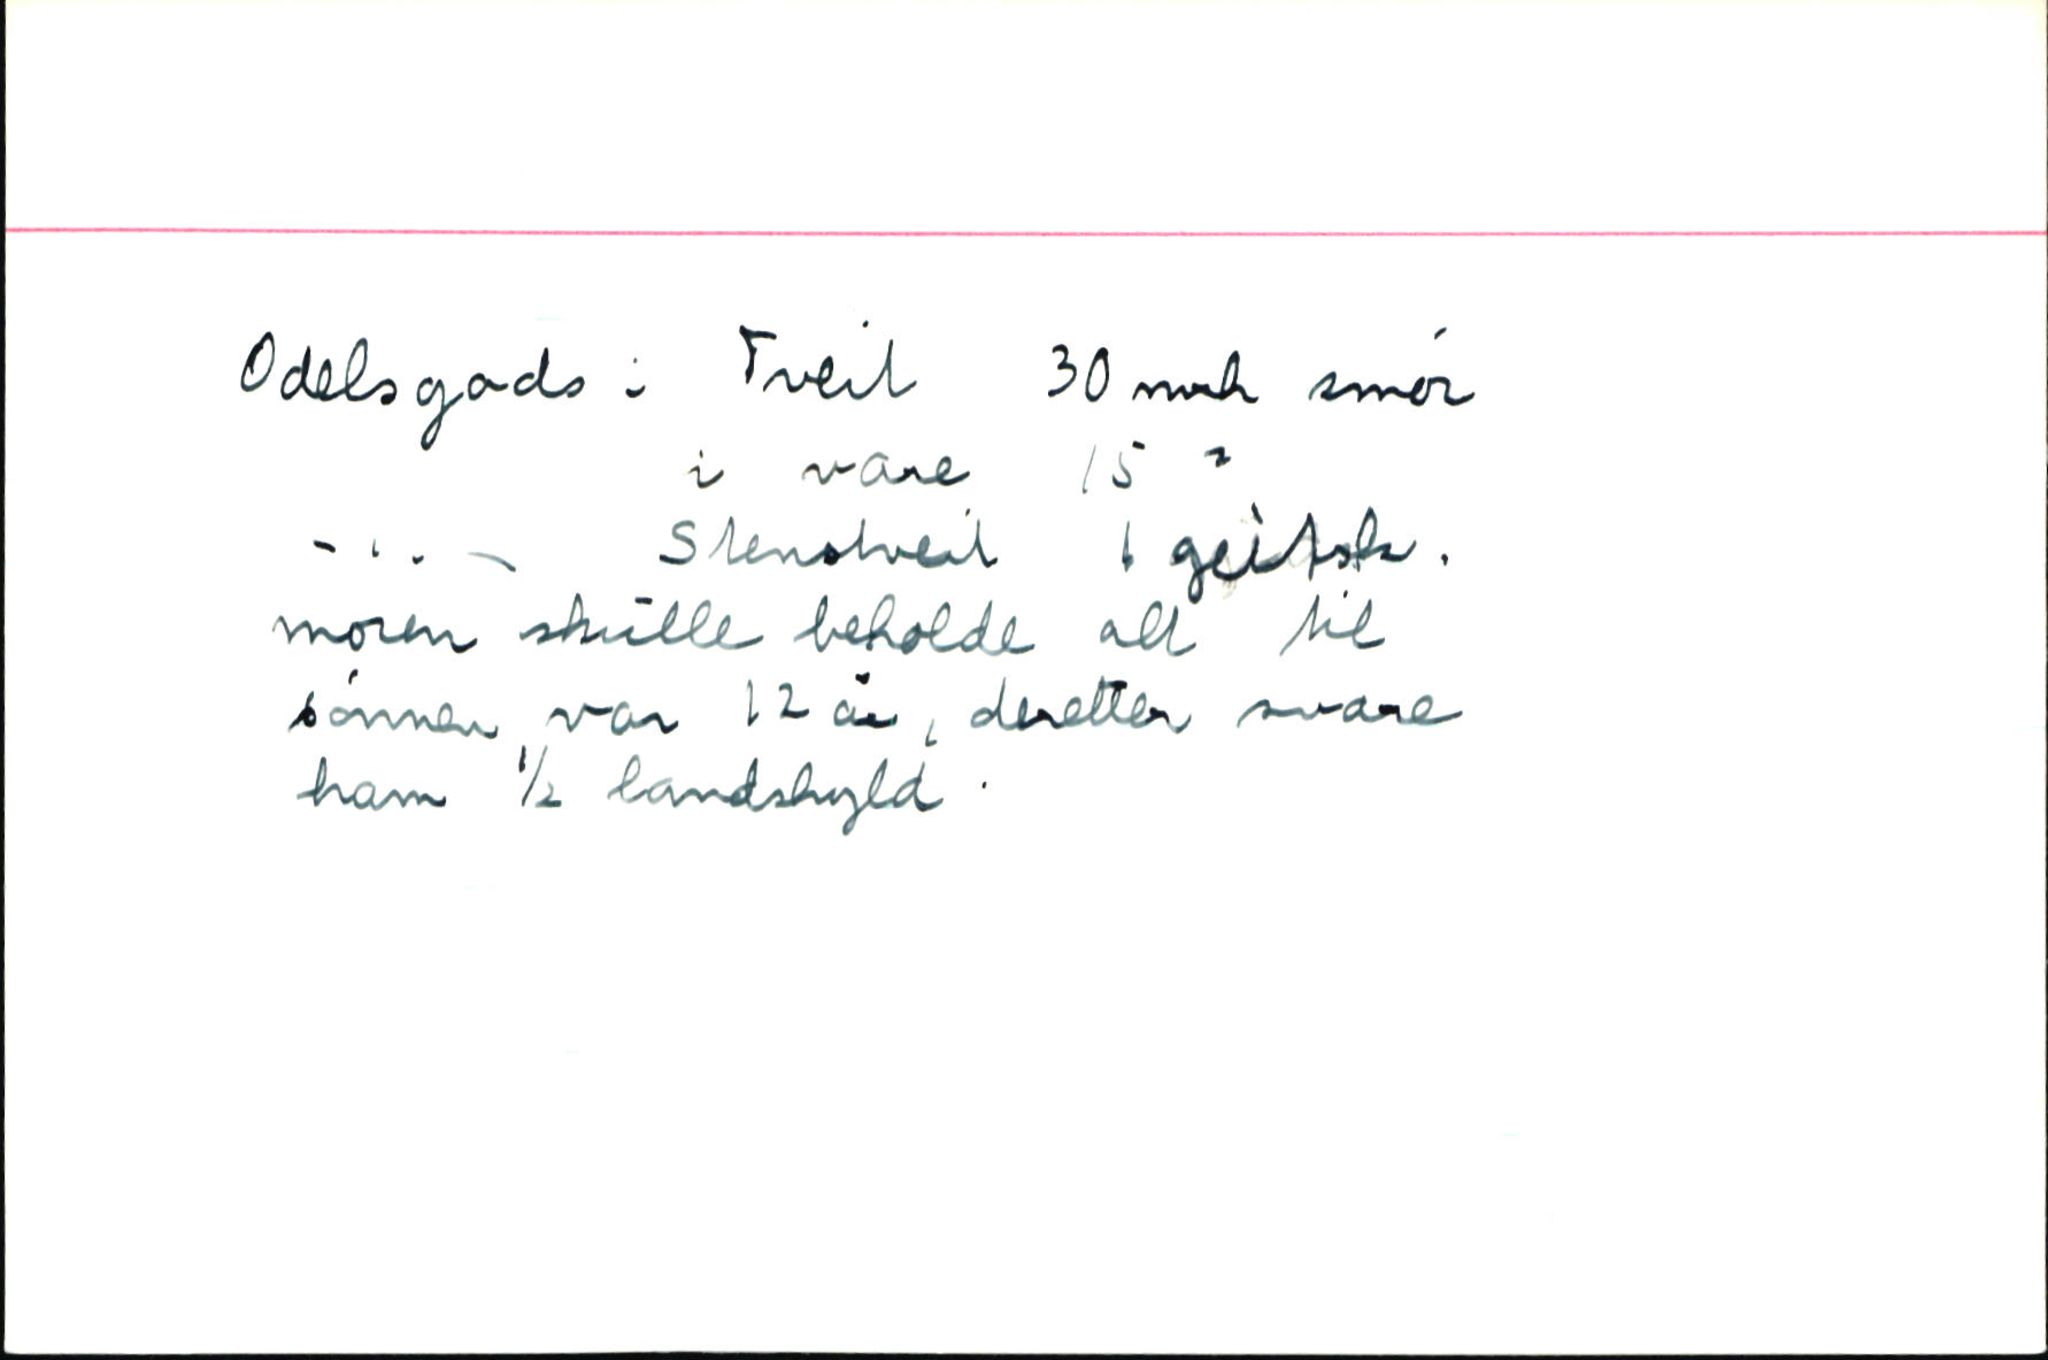 Odelsgods i Tveit 30 mrk smór
i vare 15 "
- " - Stenstveit 1 geitsk.
moren skulle beholde alt til
sónnen var 12 år, deretter svare
ham 1/2 landskyld.